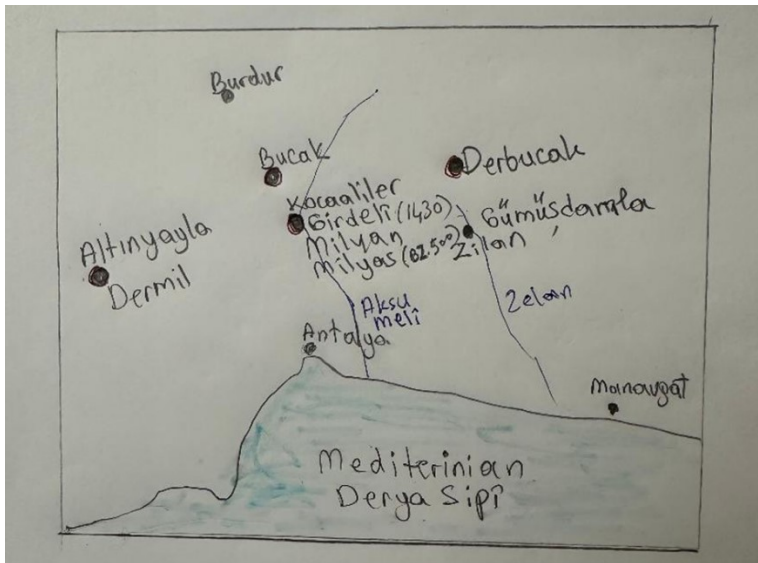 Burdur
Bucak
Derbucak
Kocaaliler
Girdeli (1430)
Milyan
Milyas (Ö2.500)
Gümüşdamla
Zilan
Altınyayla
Dermil
Aksu
meli
Zelan
Antalya
Manavgat
Mediterinian
Derya Sipî